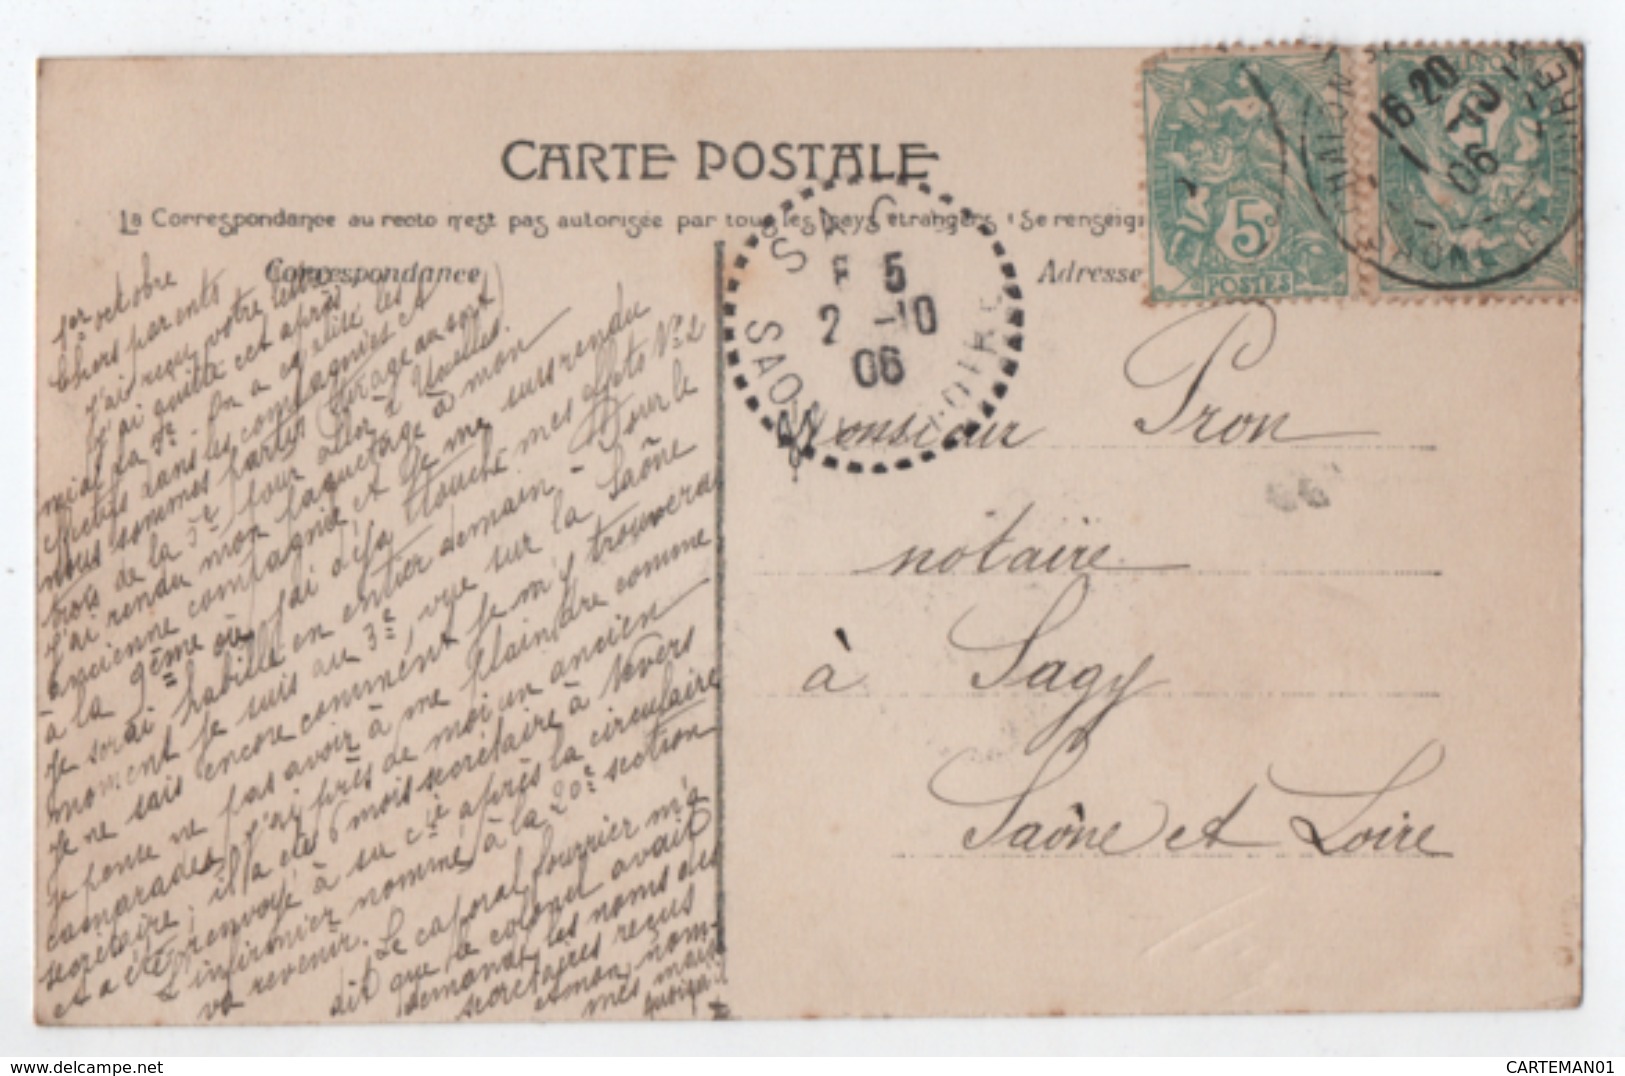 CARTE POSTALE
La Correspondance au recto n'est pas autorisée par tous les pays étrangers (Se renseign
Correspondance
Adresse
5c
POSTES
16 20
06
CHALON S
SAONE ET
5
2 -10
06
SAGY
SAONE
LOIRE
Monsieur Pron
notaire
à Sagy
Saône et Loire
1er octobre
Chers parents
J'ai reçu votre lettre
J'ai quitté cet après
midi la 3e. On a égalisé les
effectifs dans les compagnies et
nous sommes partis (tirage au sort)
trois de la 3e pour aller
J'ai rendu mon paquetage à mon
ancienne compagnie et je me suis rendu
à la 9ème où j'ai déjà touché mes effets No 2
Je serai habillé en entier demain. Pour le
moment je suis au 3e, vue sur la Saône
Je ne sais encore comment je m'y trouverai
Je pense ne pas avoir à me plaindre comme
camarades, j'ai près de moi un ancien
secrétaire; il a été 6 mois secrétaire à Nevers
et a été renvoyé à sa cie après la circulaire
L'infirmier nommé à la 20e section
va revenir. Le caporal fourrier m'a
dit que le colonel avait
demandé les noms des
secrétaires reçus
et mon nom
mes mais
quoiqu'il
CARTEMAN01